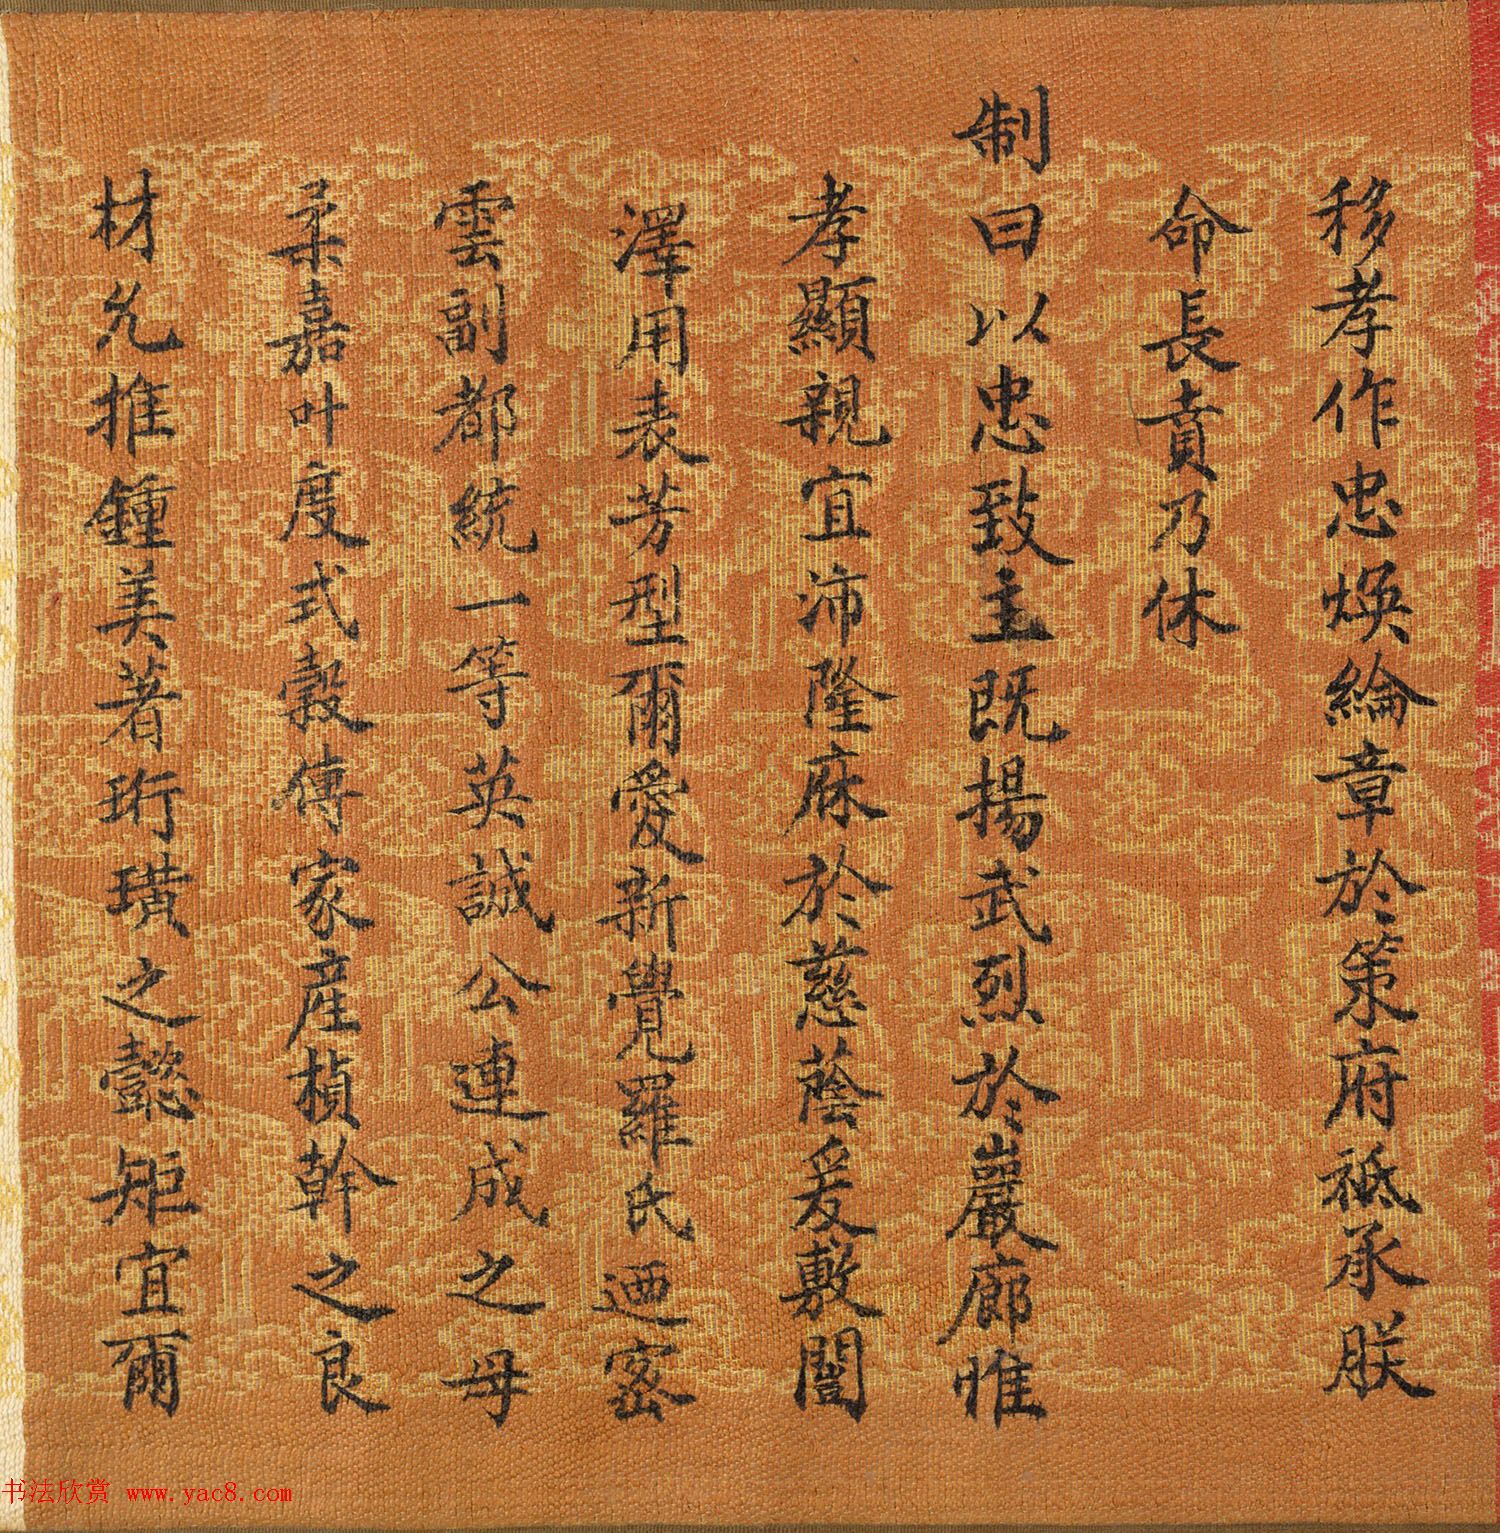 移孝作忠煥綸章於策府祗承朕
命長賁乃休
制曰以忠致主既揚武烈於巖廊惟
孝顯親宜沛隆庥於慈蔭爰敷闓
澤用表芳型爾愛新覺羅氏迺密
雲副都統一等英誠公連成之母
柔嘉叶度式穀傳家產楨幹之良
材允推鍾美著珩璜之懿矩宜爾
书法欣赏 www.yac8.com